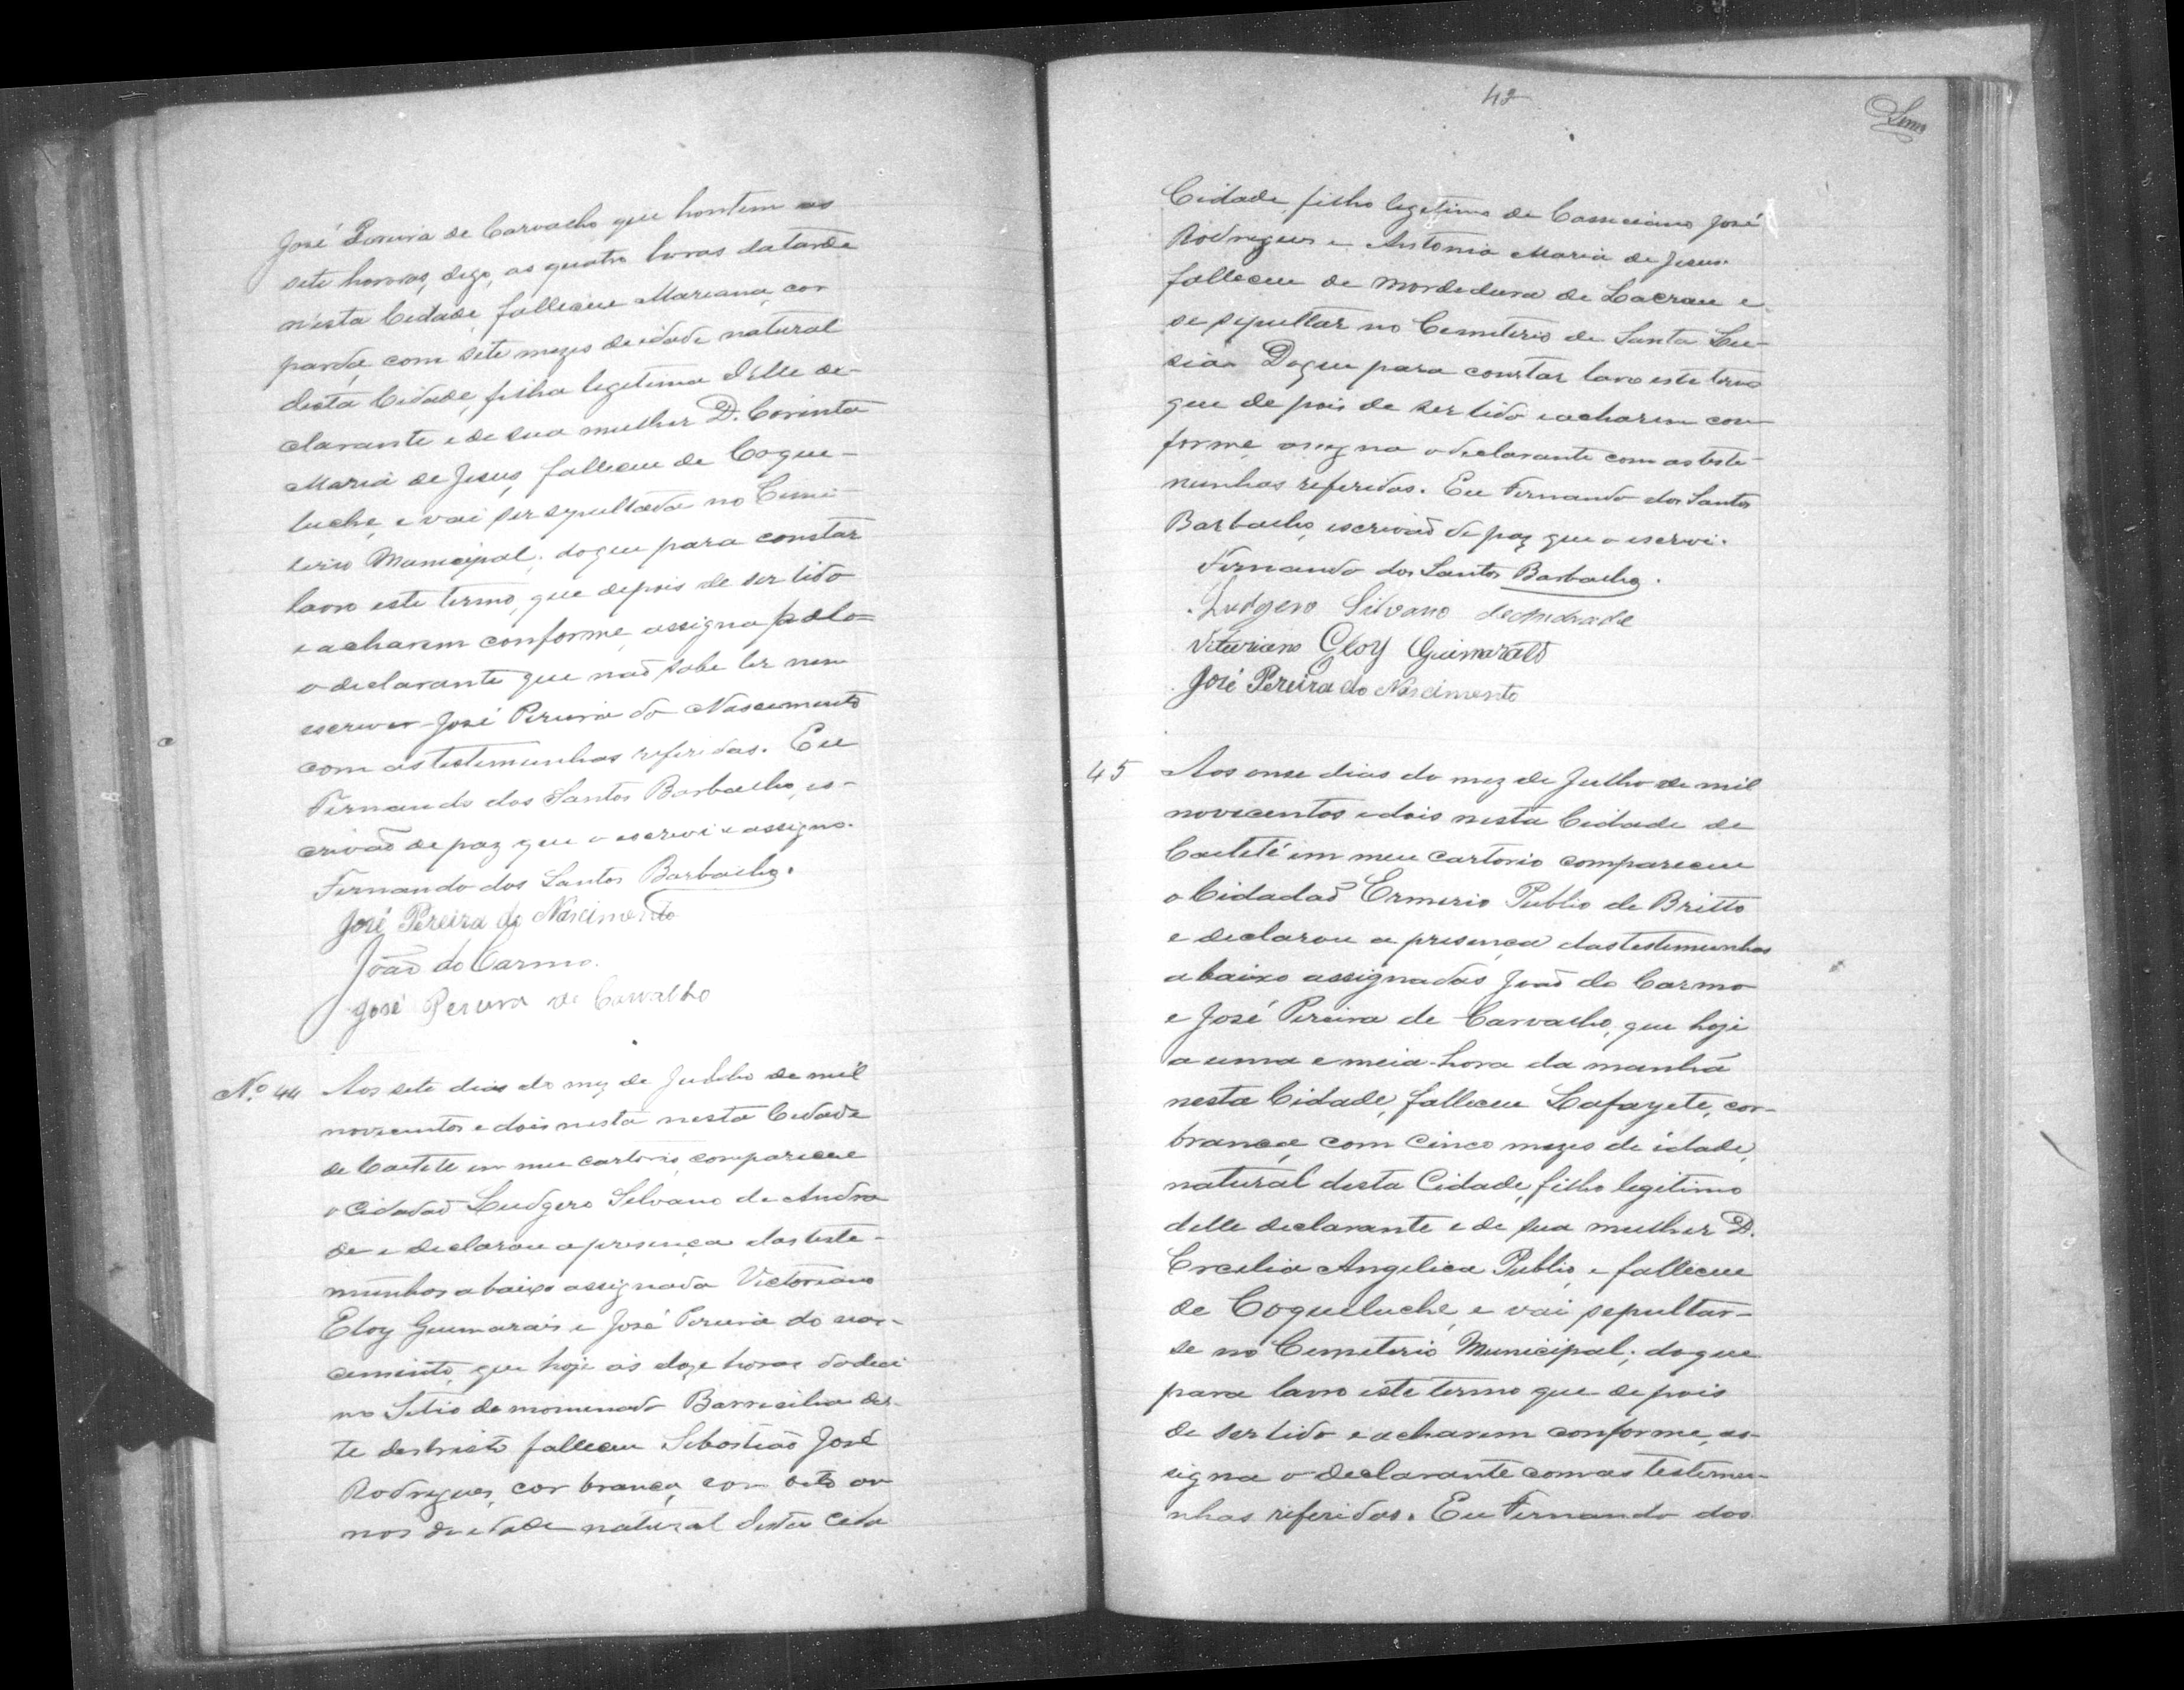 José Pereira de Carvalho que hontem as
sete horras, digo, as quatro horas da tarde
n'esta Cidade, falleceu Mariana, cor
parda, com sete mezes de idade natural
desta Cidade, filha legitima delle de-
clarante e de sua mulher D. Corinta
Maria de Jesus, falleceu de Coque-
luche, e vai ser sepultada no Cemi-
terio Municipal; do que para constar
lavro este termo, que depois de ser lido
e acharem conforme, assigna pelo
o declarante que não sabe ler nem
escrever José Pereira do Nascimento
com as testemunhas referidas. Eu
Fernando dos Santos Barbalho, es-
crivão de paz que o escrevi e assigno.
Fernando dos Santos Barbalho.
José Pereira do Nascimento
João do Carmo.
José Pereira de Carvalho
No. 44 Aos sete dias do mez de Julho de mil
novecentos e dois nesta nesta Cidade
de Caeteté em meu cartorio, compareceu
o Cidadão Ludgero Silvano de Andra
de e declarou a presença das teste-
munhas abaixo assignada Victoriano
Eloy Guimarais e José Pereira do nas-
cimento, que hoje ás doze horas do dia
no Sitio denominado des-
te destricto falleceu Sebastião José
Rodrigues, cor branca, com oito an
nos de idade natural desta Cida
42
Cidade, filho legitimo de Cassiano José
Rodrigues e Antonia Maria de Jesus.
falleceu de mordedura de Lacrau e
se sepultar no Cemiterio de Santa Lu-
sia. Do que para constar lavro este termo
que depois de ser lido e acharem con-
forme, assigna o declarante com as teste-
munhas referidas. Eu Fernando dos Santos
Barbalho, escrivão de paz que o escrevi.
Fernando dos Santos Barbalho.
Ludgero Silvano de Andrade
Vituriano Eloy Guimarais
José Pereira do Nascimento
45 Aos onse dias do mez de Julho de mil
novecentos e dois nesta Cidade de
Caeteté em meu cartorio compareceu
o Cidadão Ermerio Publio de Britto
e declarou a presença das testemunhas
abaixo assignadas João do Carmo
e José Pereira de Carvalho, que hoje
a uma e meia hora da manhã
nesta Cidade, falleceu Lafayete, cor-
branca, com cinco mezes de idade,
natural desta Cidade, filho legitimo
delle declarante e de sua mulher D.
Ercilia Angelica Publio, e falleceu
de Coqueluche, e vai sepultar-
se no Cemeterio Municipal; do que
para lavro este termo que depois
de ser lido e acharem conforme, as-
signa o declarante com as testemu-
nhas referidas. Eu Fernando dos